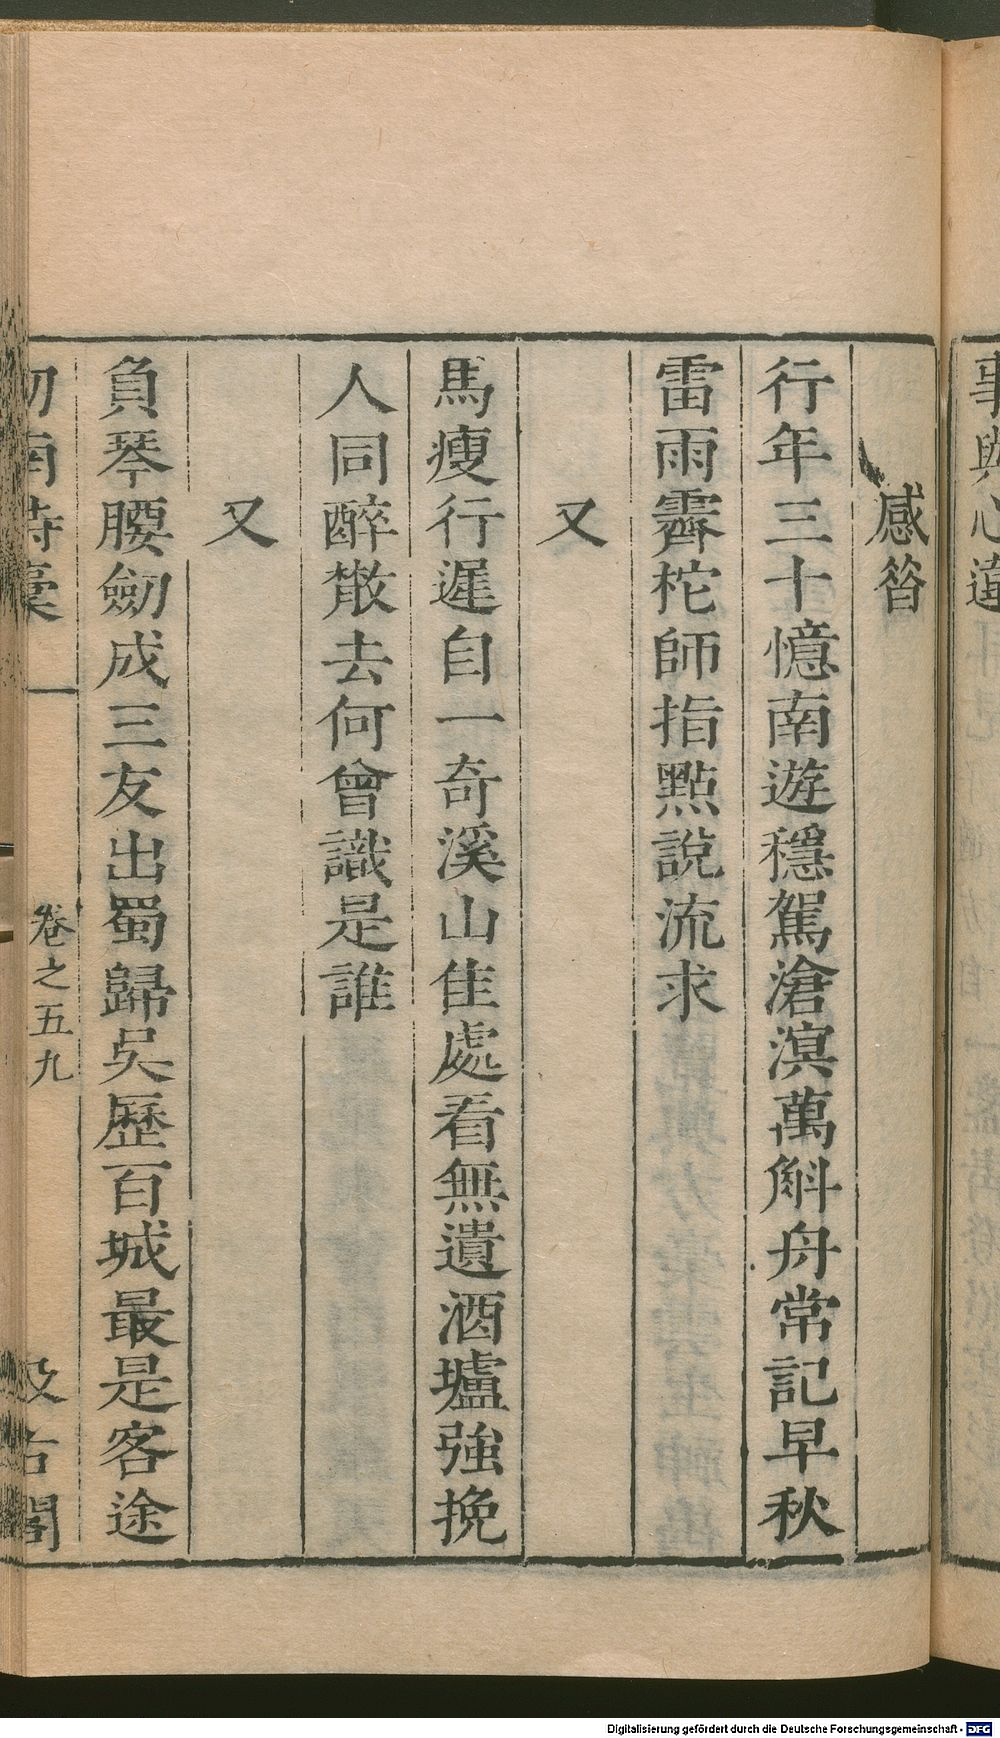 事與心違
感昝
行年三十憶南遊穩駕滄溟萬斛舟常記早秋
雷雨霽柁師指點說流求
又
馬瘦行遲自一奇溪山佳處看無遺酒壚強挽
人同醉散去何曾識是誰
又
負琴腰劒成三友出蜀歸吳歷百城最是客途
劒南詩稾
卷之五九
汲古閣
Digitalisierung gefördert durch die Deutsche Forschungsgemeinschaft - DFG